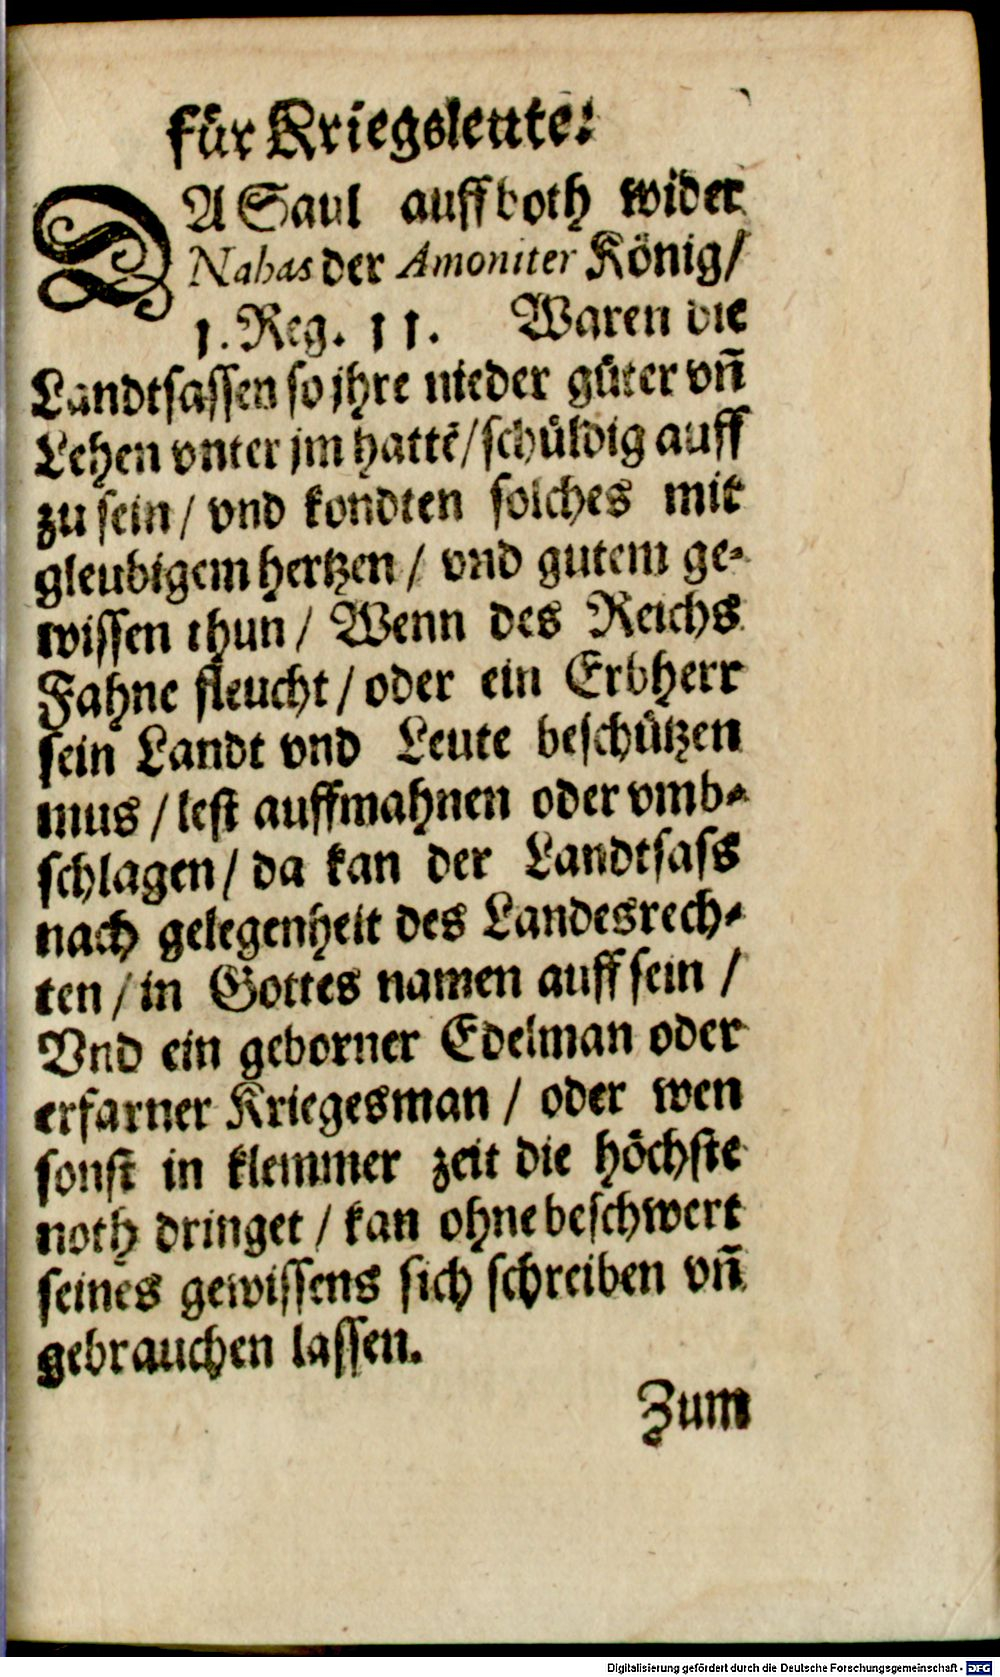 für Kriegsleute:
DA Saul auffboth wider
Nahas der Amoniter König/
1. Reg. 11. Waren die
Landtsassen so jhre nieder güter vñ
Lehen vnter jm hattẽ/schüldig auff
zu sein/ vnd kondten solches mit
gleubigem hertzen/ vnd gutem ge-
wissen thun/ Wenn des Reichs
Fahne fleucht/oder ein Erbherr
sein Landt vnd Leute beschützen
mus/lest auffmahnen oder vmb-
schlagen/ da kan der Landtsass
nach gelegenheit des Landesrech-
ten/in Gottes namen auff sein/
Vnd ein geborner Edelman oder
erfarner Kriegesman/ oder wen
sonst in klemmer zeit die höchste
noth dringet/kan ohne beschwert
seines gewissens sich schreiben vñ
gebrauchen lassen.
Zum
Digitalisierung gefördert durch die Deutsche Forschungsgemeinschaft - DFG